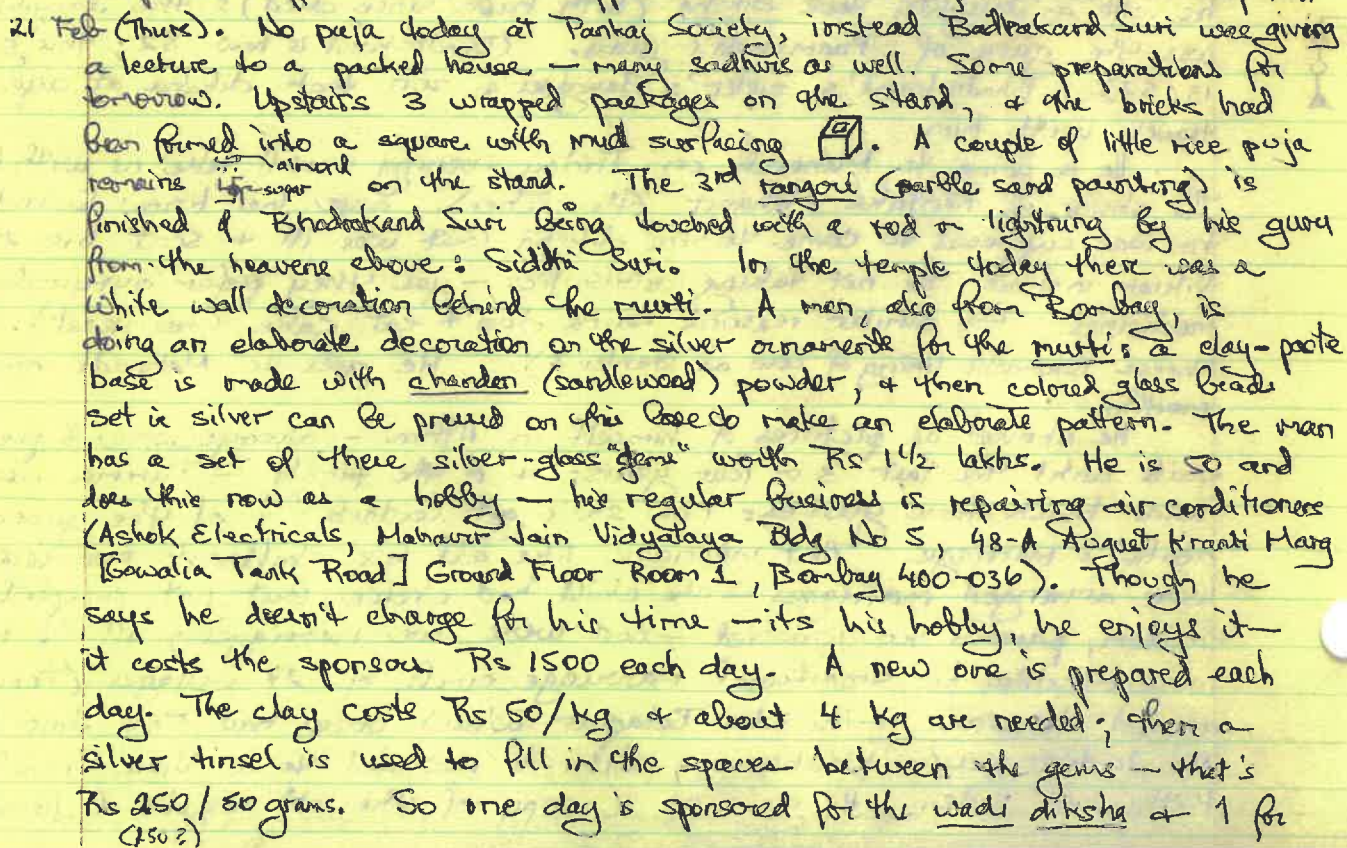 21 Feb (Thurs). No puja today at Pankaj Society, instead Badrakard Suri was giving
a lecture to a packed house — many sadhvis as well. Some preparations for
tomorrow. Upstairs 3 wrapped packages on the stand, & the bricks had
been formed into a square with mud surfacing. A couple of little rice puja
remains almond sugar on the stand. The 3rd rangoli (marble sand painting) is
finished of Bhadrakard Suri being touched with a rod or lightning by his guru
from the heavens above: Siddhi Suri. In the temple today there was a
white wall decoration behind the murti. A man, also from Bombay, is
doing an elaborate decoration on the silver ornaments for the murti: a clay-paste
base is made with chanden (sandlewood) powder, & then colored glass beads
set in silver can be pressed on this base to make an elaborate pattern. The man
has a set of these silver-glass "gems" worth Rs 1 1/2 lakhs. He is 50 and
does this now as a hobby — his regular business is repairing air conditioners
(Ashok Electricals, Mahavir Jain Vidyalaya Bldg No 5, 48-A August Kranti Marg
[Gowalia Tank Road] Ground Floor Room 1, Bombay 400-036). Though he
says he doesn't charge for his time — its his hobby, he enjoys it —
it costs the sponsor Rs 1500 each day. A new one is prepared each
day. The clay costs Rs 50/kg & about 4 kg are needed; then a
silver tinsel is used to fill in the spaces between the gems — that's
Rs 250/50 grams. So one day is sponsored for the wadi diksha & 1 for
(250?)